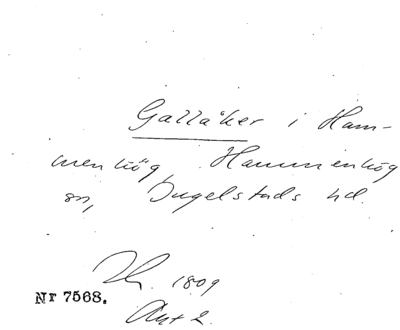 Gallåker i Ham-
menhög, Hammenhög
sn, Ingelstads hd.
1809
Nr 7568.
Akt 2.